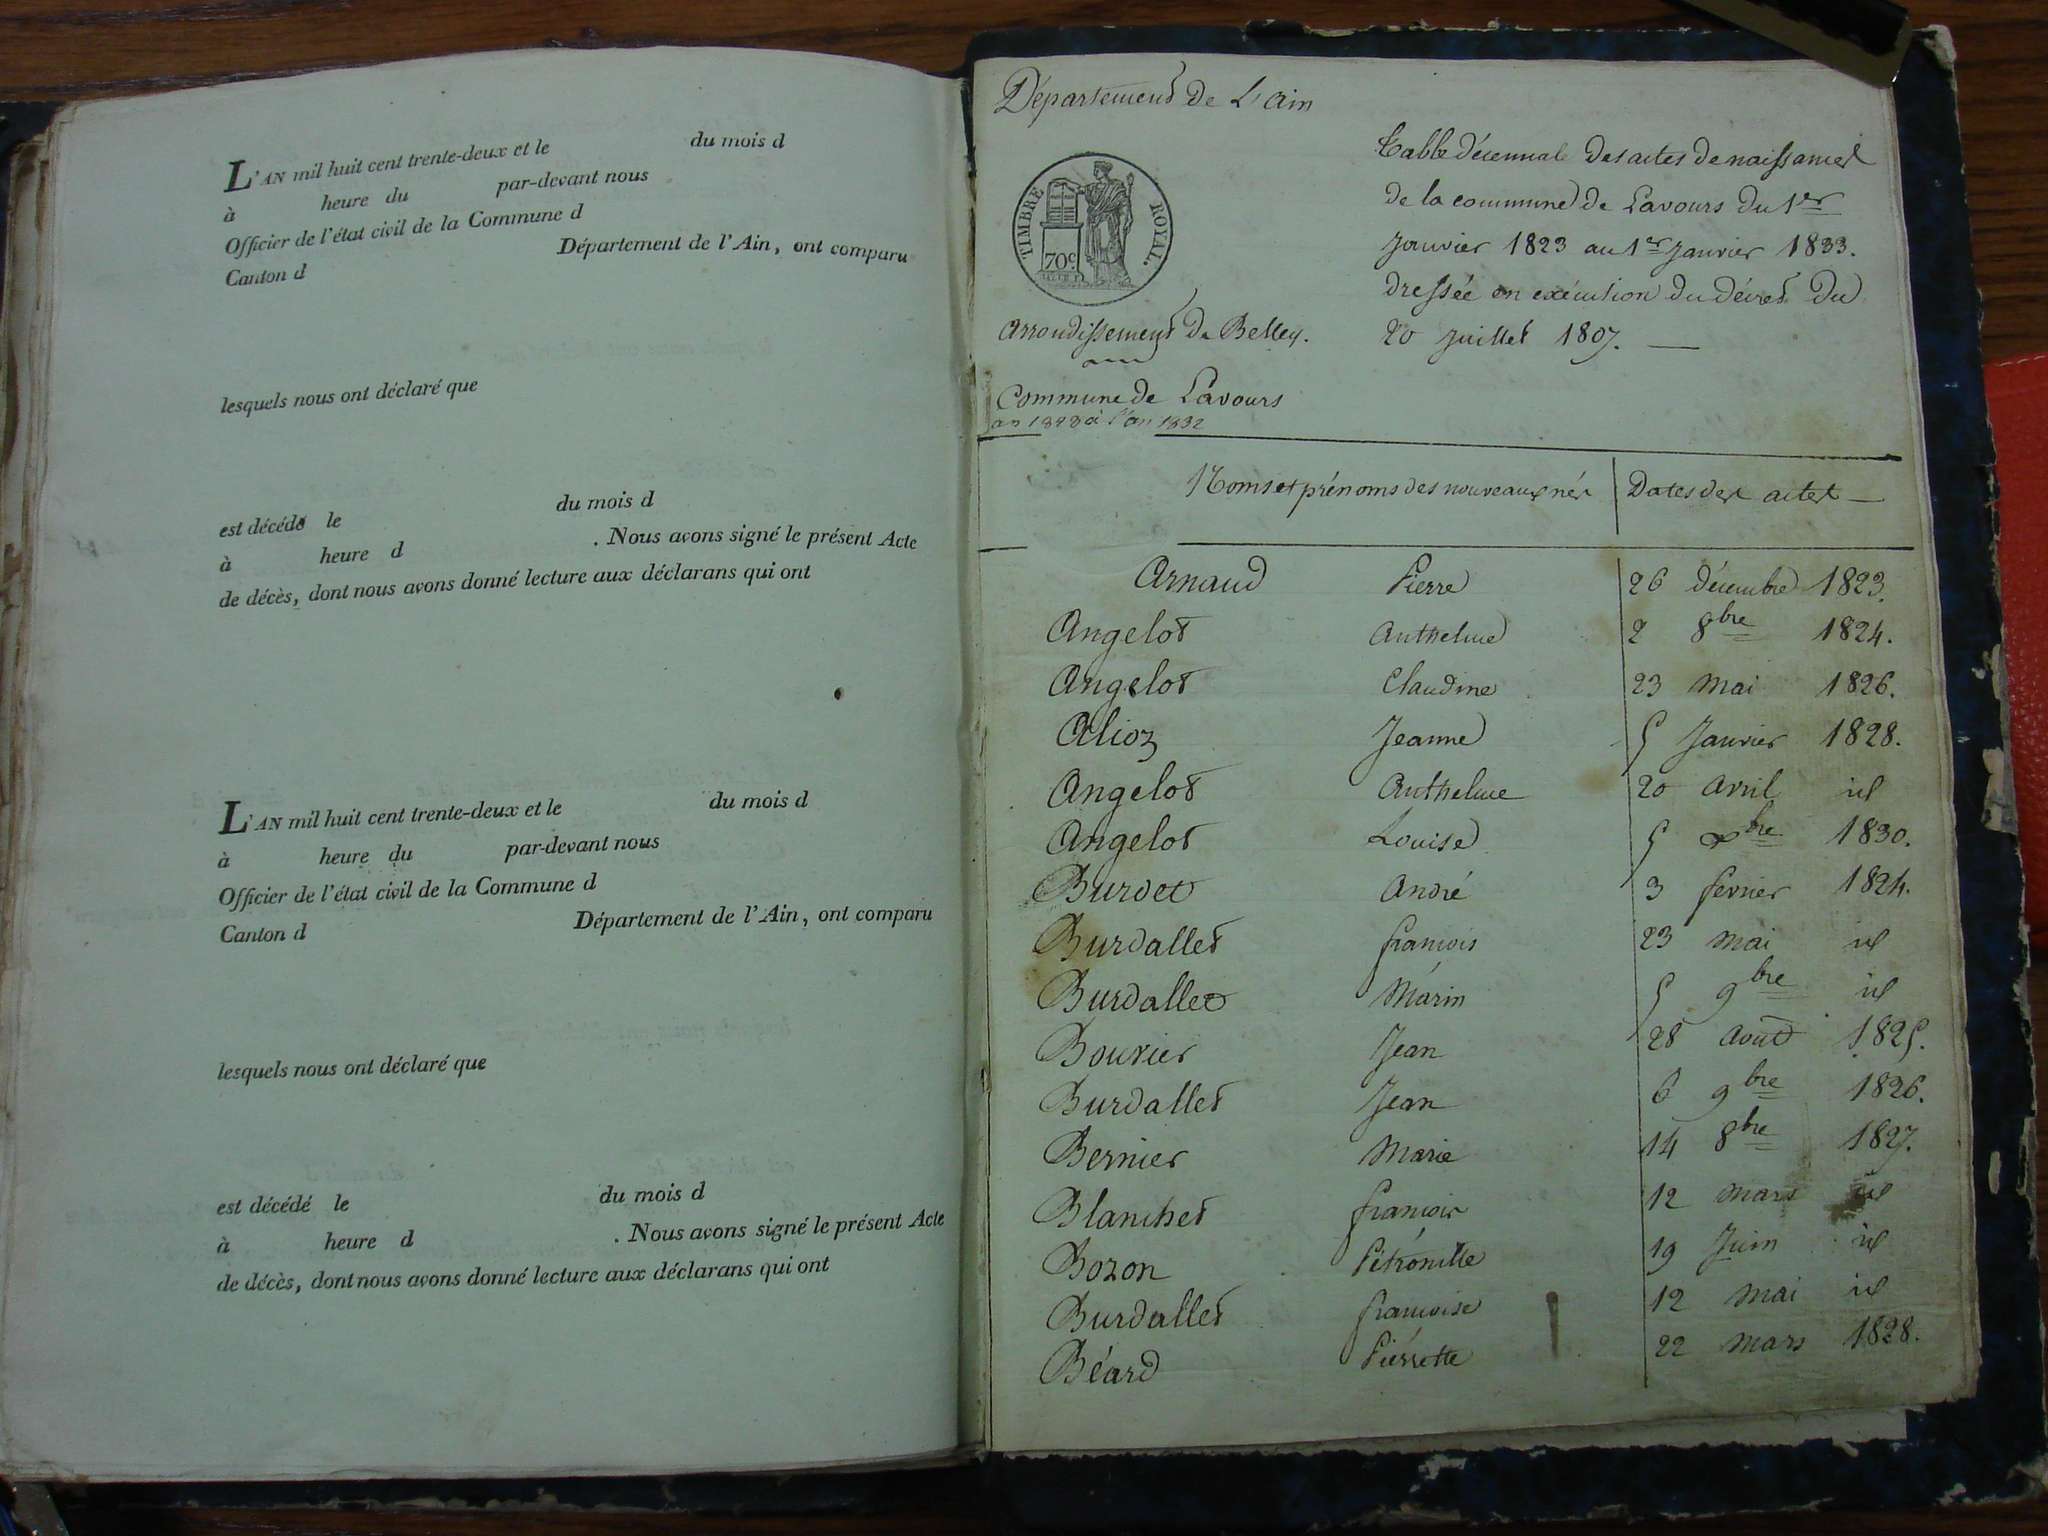 L'AN mil huit cent trente-deux et le du mois d
à heure du par-devant nous
Officier de l'état civil de la Commune d
Canton d Département de l'Ain, ont comparu
lesquels nous ont déclaré que
est décédé le du mois d
à heure d . Nous avons signé le présent Acte
de décès, dont nous avons donné lecture aux déclarans qui ont
L'AN mil huit cent trente-deux et le du mois d
à heure du par-devant nous
Officier de l'état civil de la Commune d
Canton d Département de l'Ain, ont comparu
lesquels nous ont déclaré que
est décédé le du mois d
à heure d . Nous avons signé le présent Acte
de décès, dont nous avons donné lecture aux déclarans qui ont
Département de L'ain
TIMBRE ROYAL.
70c.
Arrondissement de Belley.
Commune de Lavours
an 1823 à l'an 1832
Table décennale des actes de naissances
de la commune de Lavours du 1er
Janvier 1823 au 1er Janvier 1833.
dressée en exécution du décret du
20 Juillet 1807.
Noms et prénoms des nouveaux nés Dates des actes
Arnaud Pierre 26 décembre 1823.
Angelot Anthelme 2 8bre 1824.
Angelot Claudine 23 Mai 1826.
Alioz Jeanne 5 Janvier 1828.
Angelot Anthelme 20 avril id
Angelot Louise 5 Xbre 1830.
Burdet André 3 fevrier 1824.
Burdallet françois 23 Mai id
Burdallet Marin 5 9bre id
Bouvier Jean 28 Août 1825.
Burdallet Jean 6 9bre 1826.
Bernier Marie 14 8bre 1827.
Blanchet françois 12 Mars id
Bozon Pétronille 19 Juin id
Burdallet françoise 12 Mai id
Béard Pierrette 22 Mars 1828.